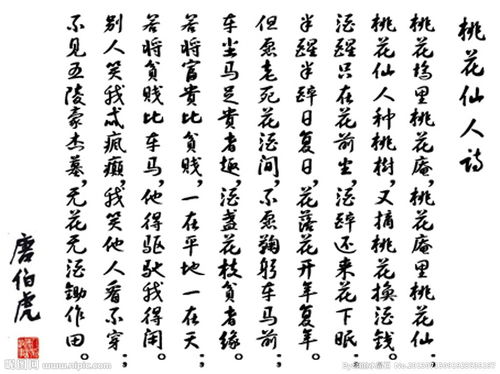 桃花仙人诗
桃花坞里桃花庵,桃花庵里桃花仙;
桃花仙人种桃樹,又摘桃花换酒钱。
酒醒只在花前坐,酒醉还来花下眠;
半醒半醉日复日,花落花开年复年。
但愿老死花酒间,不愿鞠躬车马前;
车尘马足貴者趣,酒盏花枝貧者缘。
若将富貴比貧贱,一在平地一在天;
若将貧贱比车马,他得驱驰我得闲。
别人笑我忒疯癫,我笑他人看不穿;
不见五陵豪杰墓,无花无酒锄作田。
唐伯虎
昵图网 www.nipic.com